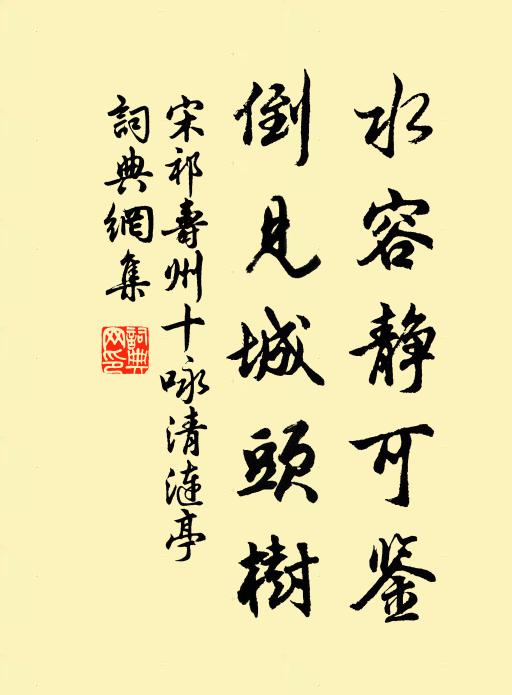 水容静可鉴
倒見城頭樹
宋祁壽州十咏清漣亭
詞典網集
詞典网印